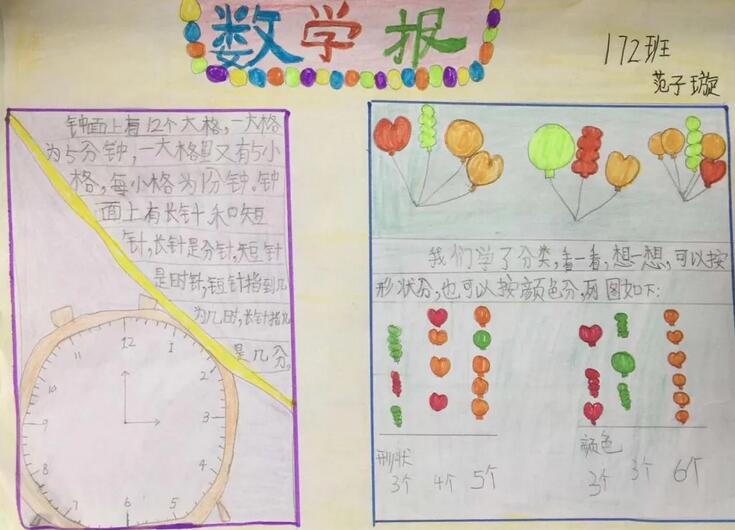 数学报
172班
范子璇
钟面上有12个大格,一大格
为5分钟,一大格里又有5小
格,每小格为1分钟。钟
面上有长针和短
针,长针是分针,短针
是时针,短针指到几
为几时,长针指几
是几分。
12
1
2
3
4
5
6
7
8
9
10
11
我们学了分类,看一看,想一想,可以按
形状分,也可以按颜色分,两图如下:
形状
3个 4个 5个
颜色
3个 3个 6个